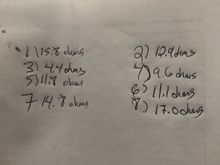 1) 15.8 ohms
2) 12.9 ohms
3) 4.4 ohms
4) 9.6 ohms
5) 11.8 ohms
6) 11.1 ohms
7 14.8 ohms
8) 17.0 ohms